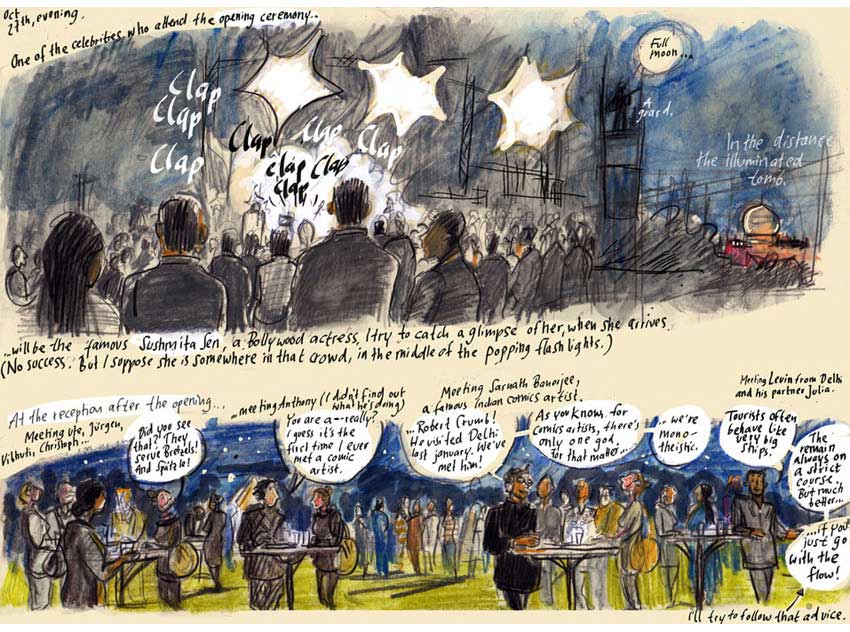 Oct
27th, evening.
One of the celebrities who attend the opening ceremony...
Clap
Clap
Clap
Clap
Clap
Clap
Clap
Clap
Clap
Full
moon...
A
guard.
In the distance
the illuminated
tomb.
...will be the famous Sushmita Sen, a Bollywood actress. I try to catch a glimpse of her, when she arrives.
(No success. But I suppose she is somewhere in that crowd, in the middle of the popping flash lights.)
At the reception after the opening...
Meeting Ute, Jürgen,
Vibhuti, Christoph...
Did you see
that? They
serve Bretzels!
And Spätzle!
...meeting Anthony (I didn't find out
what he's doing)
You are a--really?
I guess it's the
first time I ever
met a comic
artist.
Meeting Sarnath Banerjee,
a famous Indian comics artist.
...Robert Crumb!
He visited Delhi
last January. We've
met him!
As you know, for
comics artists, there's
only one god,
for that matter...
...we're
mono-
theistic.
Meeting Levin from Delhi
and his partner Julia.
Tourists often
behave like
very big
ships.
The remain
always on
a strict
course.
But much
better...
...if you
just go
with the
flow!
I'll try to follow that advice.